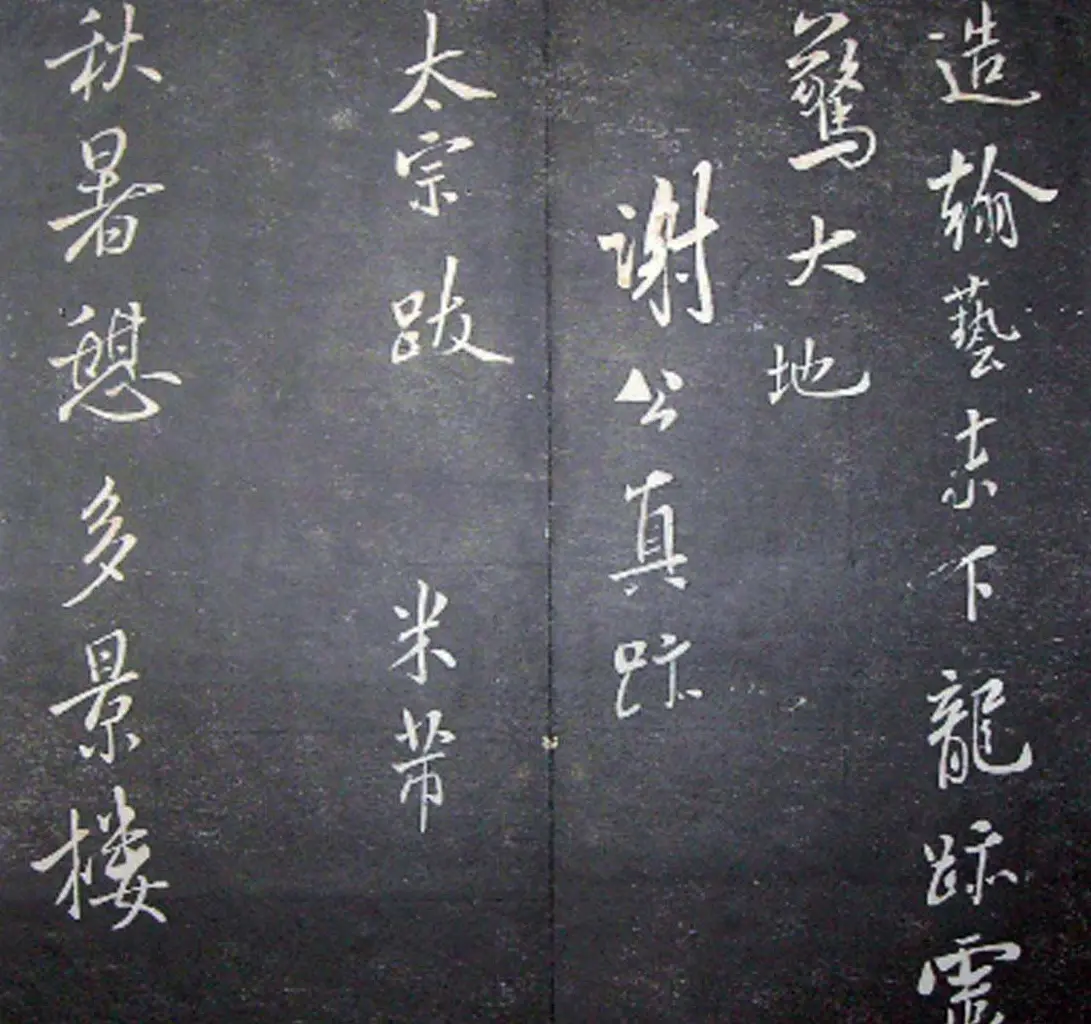 造翰藝下龍跡
驚大地
謝公真跡
太宗跋 米芾
秋暑憩多景楼